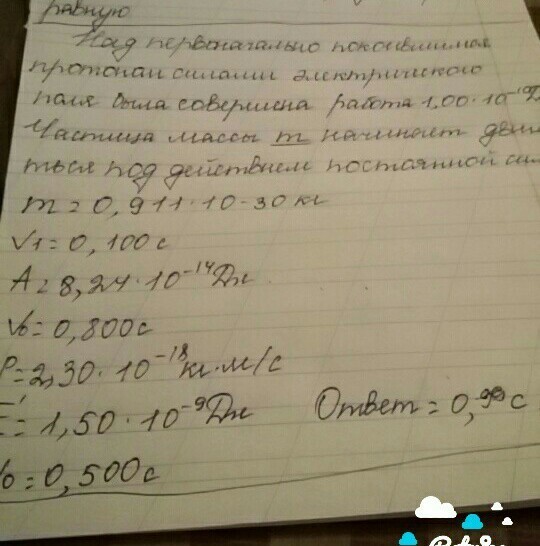 равную
Над первоначально покоившимся
протоном силами электрического
поля была совершена работа 1,00·10
Частица массы m начинает
ться под действием постоянной
m = 0,911·10-30 кг
V1 = 0,100 с
A = 8,24·10⁻¹⁴ Дж
V0 = 0,800 с
P = 2,30·10⁻¹⁸ кг·м/с
= 1,50·10⁻⁹ Дж Ответ = 0,99 с
= 0,500 с